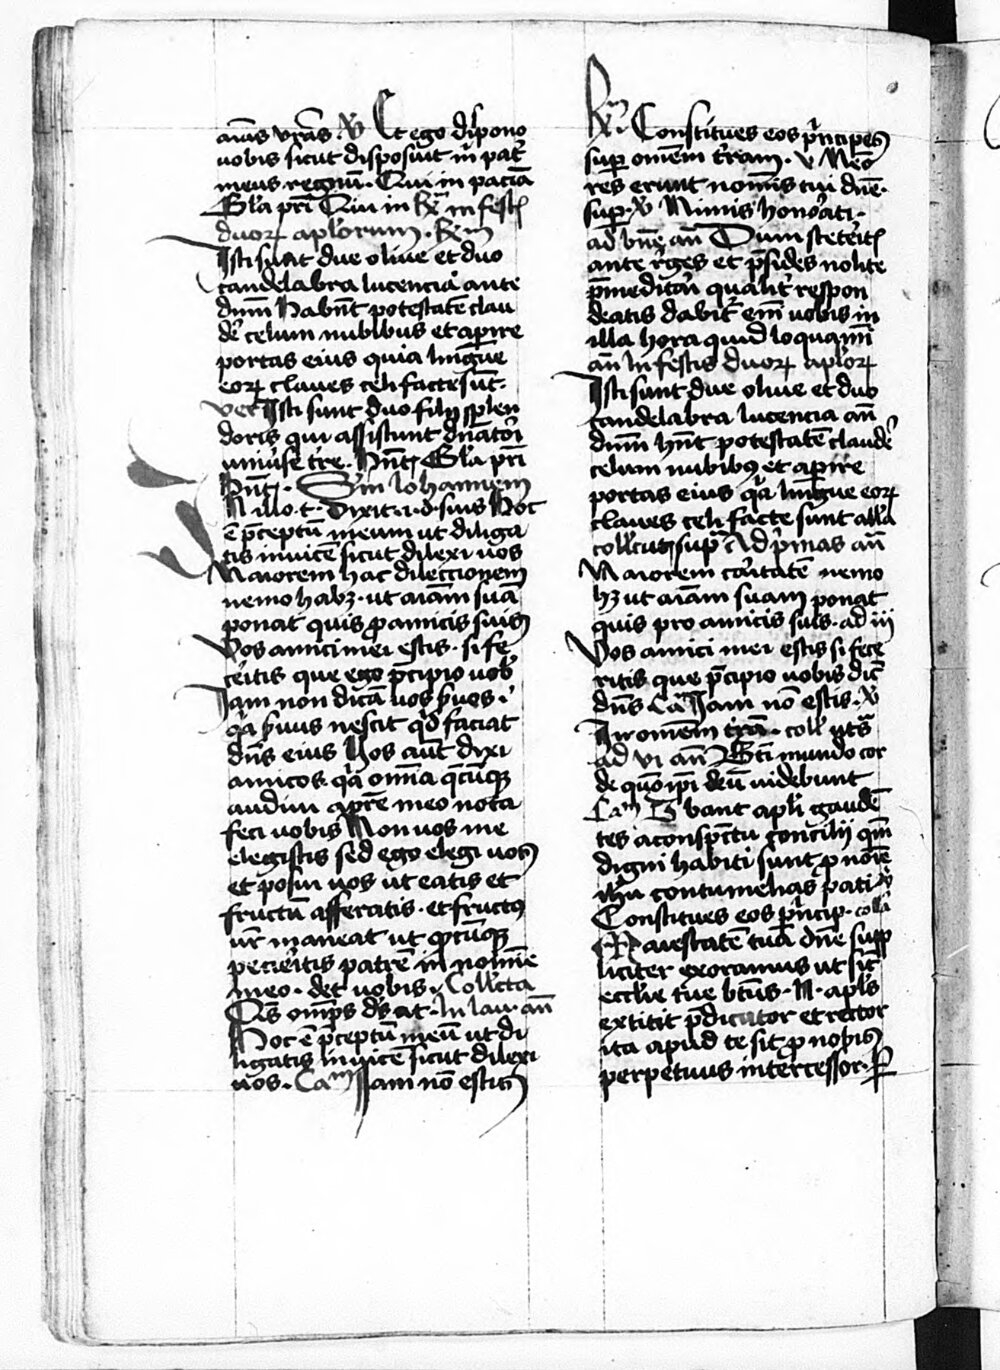 aīas vr̄as. ℣ Et ego dispono
vobis sicut disposuit m̄ pat̄
meus regnū. Qui in paciā
Gl̄a pr̄i Qui in ℟ in fest
duorꝝ aplorum. ℟m
Isti sunt due olive et duo
candelabra lucencia ante
dnm̄ Habn̄t potestatē clau
de᷒ celum nubibus et aperire
portas eius quia lingue
eorꝝ claves celi facte sūt.
vers Isti sunt duo filii splen
doris qui assistunt dn̄atori
univ̄se tr̄e. Hn̄t Gl̄a pr̄i
Hn̄t. Sm̄ Iohannem
N illo. t. Dixit. i. d. suis Hoc
ē p̄ceptū meum ut diliga
tis invicē sicut dilexi vos
Maiorem hac dileccionem
nemo habꝫ. ut aīam suā
ponat quis ꝓ amicis suis
Vos amici mei estis. si fe
ceritis que ego p̄cipio vob̄
Iam non dicā vos ẜvos.
qa ẜvus nescit qd faciat
dn̄s eius Vos aūt dixi
amicos. qa om̄ia qcūqꝫ
audivi a pr̄e meo nota
feci vobis Non vos me
elegistis sed ego elegi vos
et posui vos ut eatis et
fructū afferatis. et fructꝰ
vr̄ maneat ut qdcūqꝫ
pecieritis patrē in nomīe
meo. det vobis. Coll̄cta
Qs̄ omp̄s d̄s at. In lau. an̄
Hoc ē p̄ceptū meū ut di
ligatis invicē sicut dilexi
vos. Cam Iam nō estis
℟m. Constitues eos principes
sup̄ omēm t̄ram. ℣ Meō
res erunt nomīs tui dn̄e.
sup̄. ℣ Nimis honorati.
ad bn̄e an̄ Dum steterit
ante reges et p̄sides nolite
p̄meditari qualit̄ respon
deatis dabit̄ em̄ vobis in
illa hora quid loquamī
an̄ In festis duorꝝ aplorꝝ
Isti sunt due olive et duo
candelabra lucencia an̄
dnm̄ hn̄t potestatē claude᷒
celum nubibꝰ et aperire
portas eius qa lingue eorꝝ
claves celi facte sunt all̄a
collcta sup̄ Ad p̄mas an̄
Maiorem caritatē nemo
hꝫ ut aīam suam ponat
quis pro amicis suis. ad iij
Vos amici mei estis si fece
ritis que p̄cipio vobis dic̄
dn̄s Cam Iam nō estis. ℣
In omēm t̄rā. coll̄ ut sᵃ
ad vi an̄ Bt̄i mundo cor
de qm̄ ip̄i deū videbunt
Cam Ibant apl̄i gaudē
tes a conspctu concilij qm̄
digni habiti sunt ꝓ noīe
ihū contumelias pati ℣
Constitues eos p̄ncip. coll̄a
Maiestatē tuā dn̄e supp
liciter exoramus ut sic̄
eccl̄ie tue bt̄us. N. apl̄s
extitit p̄dicator et rector
ita apud te sit ꝓ nobis
perpetuus intercessor. P